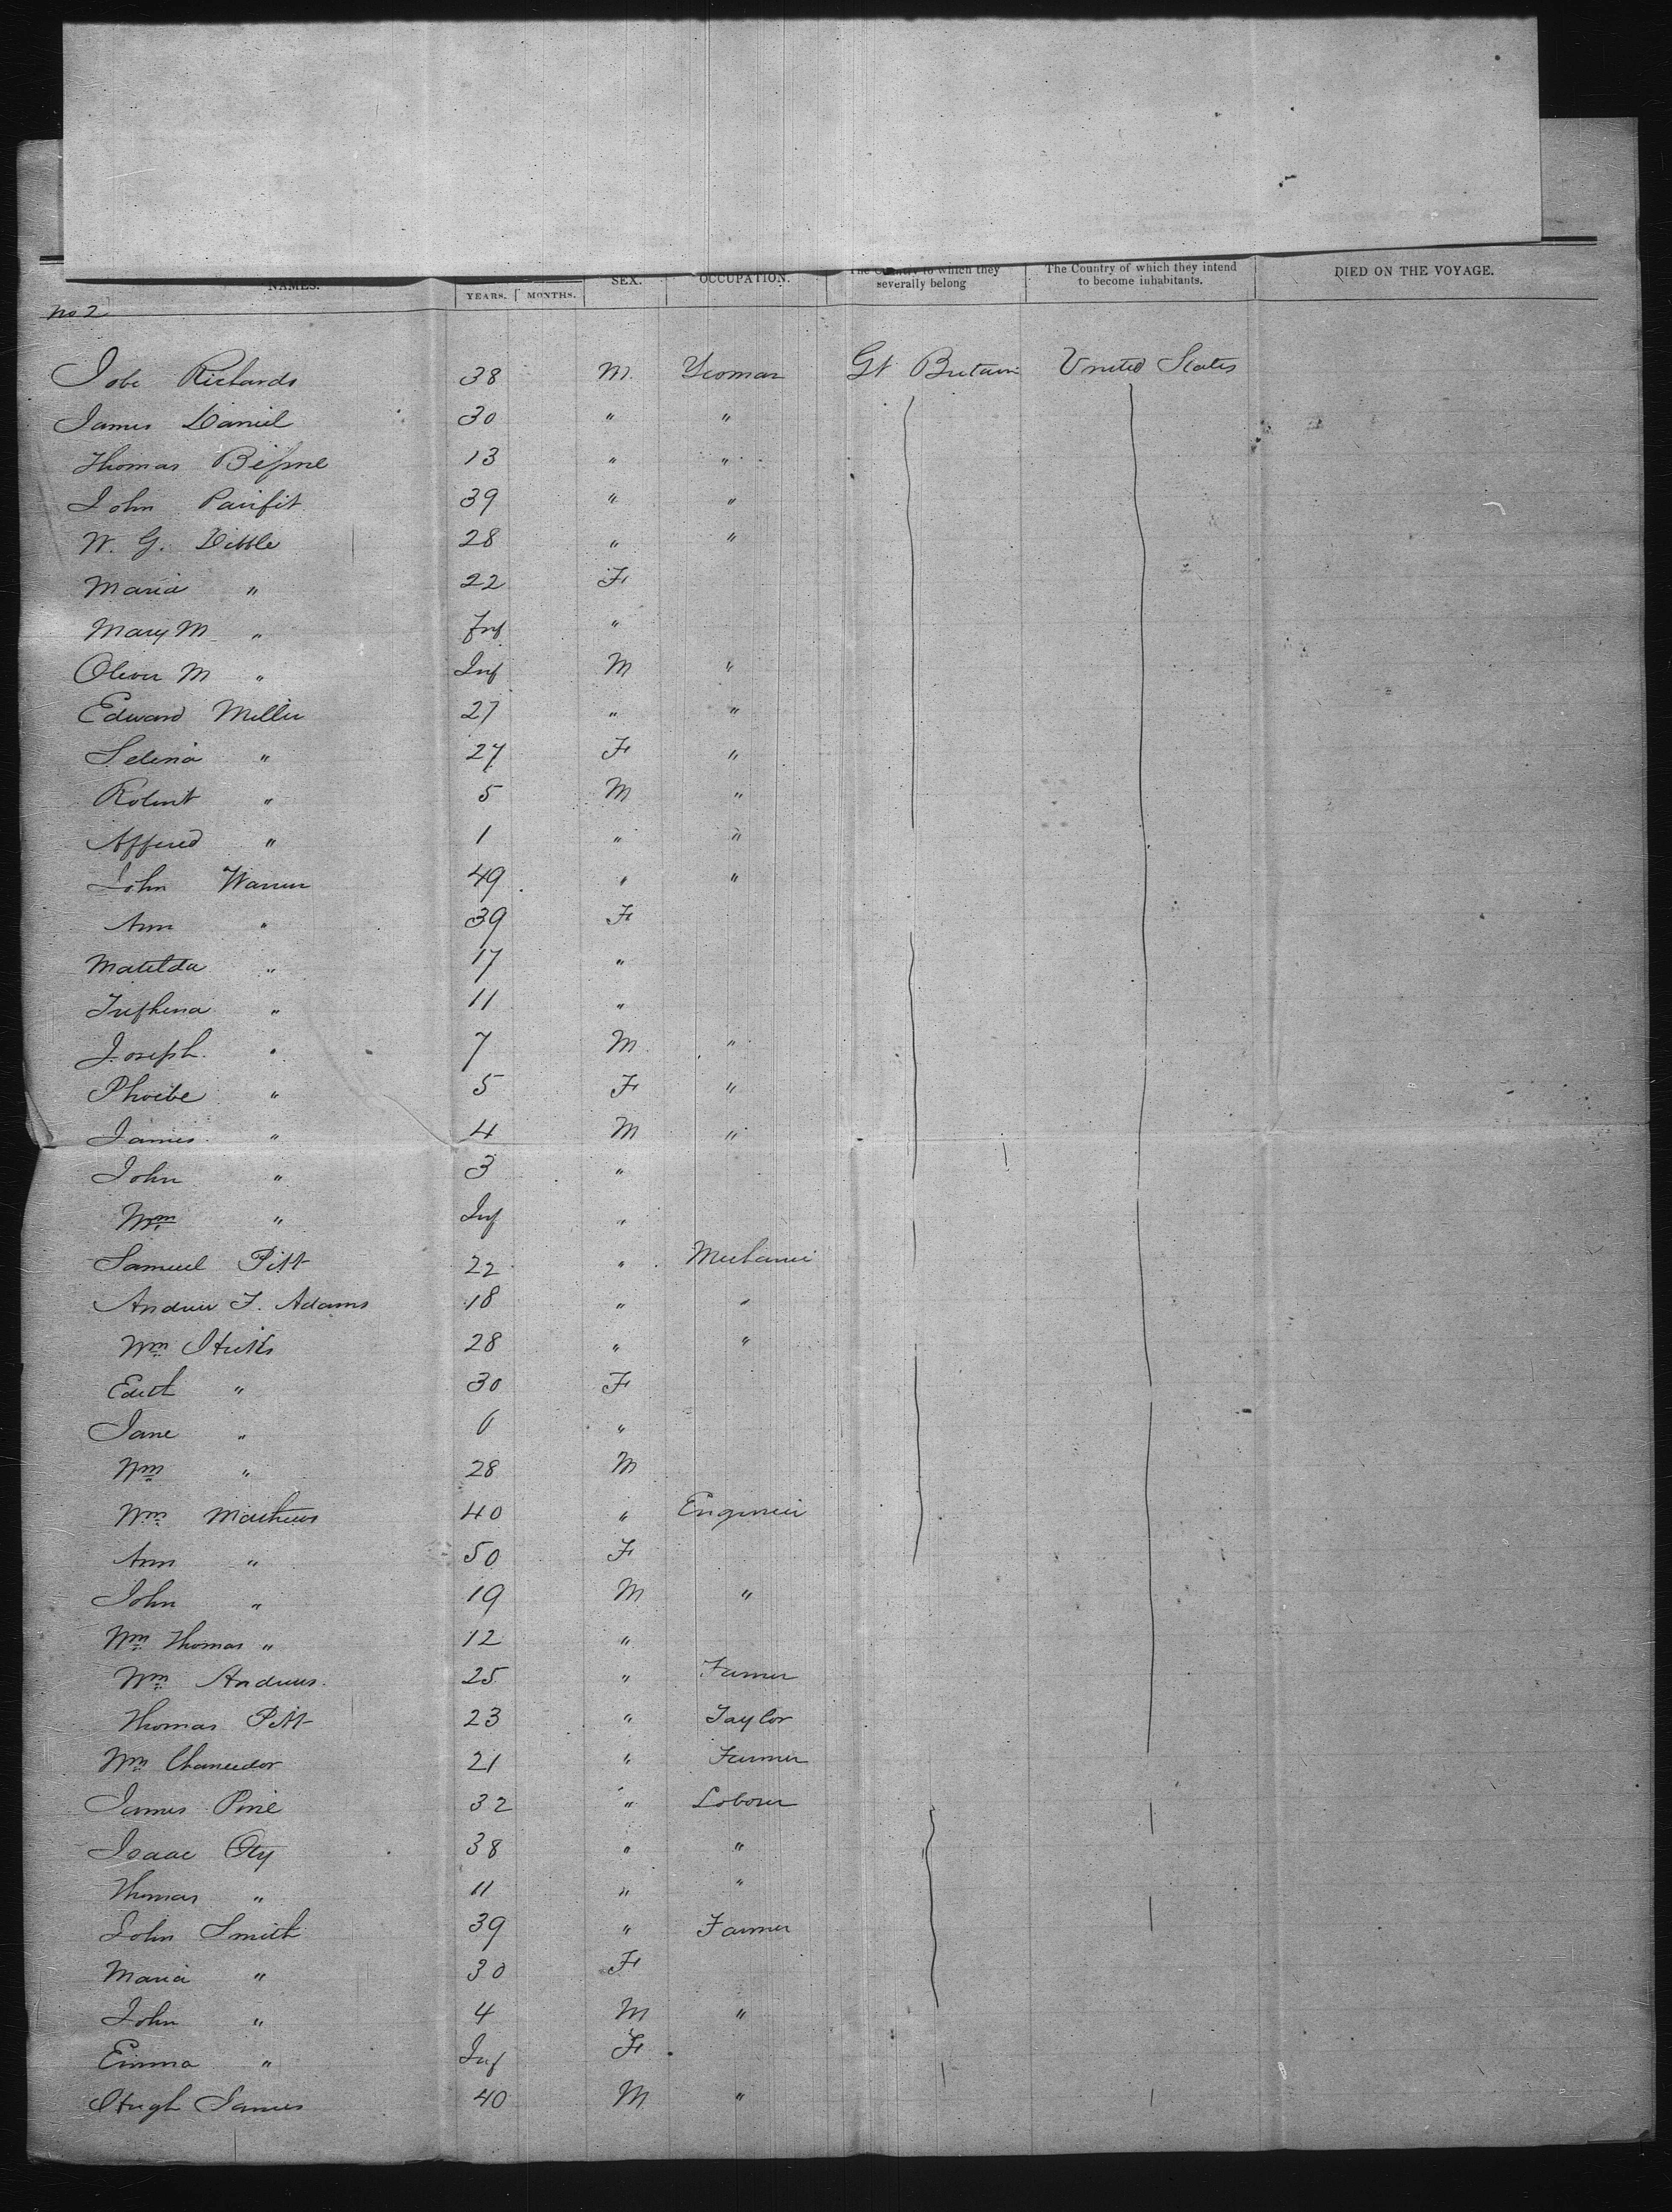 NAMES. YEARS. MONTHS. SEX. OCCUPATION. The Country to which they severally belong The Country of which they intend to become inhabitants. DIED ON THE VOYAGE.
No 2
Jobe Richards 38 M. Yeoman Gt Britain United States
James Daniel 30 " "
Thomas 13 " "
John Parifit 39 " "
W. G. Dibble 28 " "
Maria " 22 F
Mary M " Inf "
Oliver M " Inf M "
Edward Miller 27 " "
Selina " 27 F "
Robert " 5 M "
Alfred " 1 " "
John Warren 49 " "
Ann " 39 F
Matilda " 17 "
Tryphena " 11 "
Joseph " 7 M "
Phoebe " 5 F "
James " 4 M "
John " 3 "
Wm " Inf "
Samuel Pitt 22 " Mechanic
Andrew F. Adams 18 " "
Wm Hicks 28 " "
Edith " 30 F
Jane " 6 "
Wm " 28 M
Wm Mathews 40 " Engineer
Ann " 50 F
John " 19 M "
Wm Thomas " 12 "
Wm Andrews. 25 " Farmer
Thomas Pitt 23 " Taylor
Wm 21 " Farmer
James Pine 32 " Laborer
Isaac 38 " "
Thomas " 11 " "
John Smith 39 " Farmer
Maria " 30 F
John " 4 M "
Emma " Inf F
Hugh James 40 M "